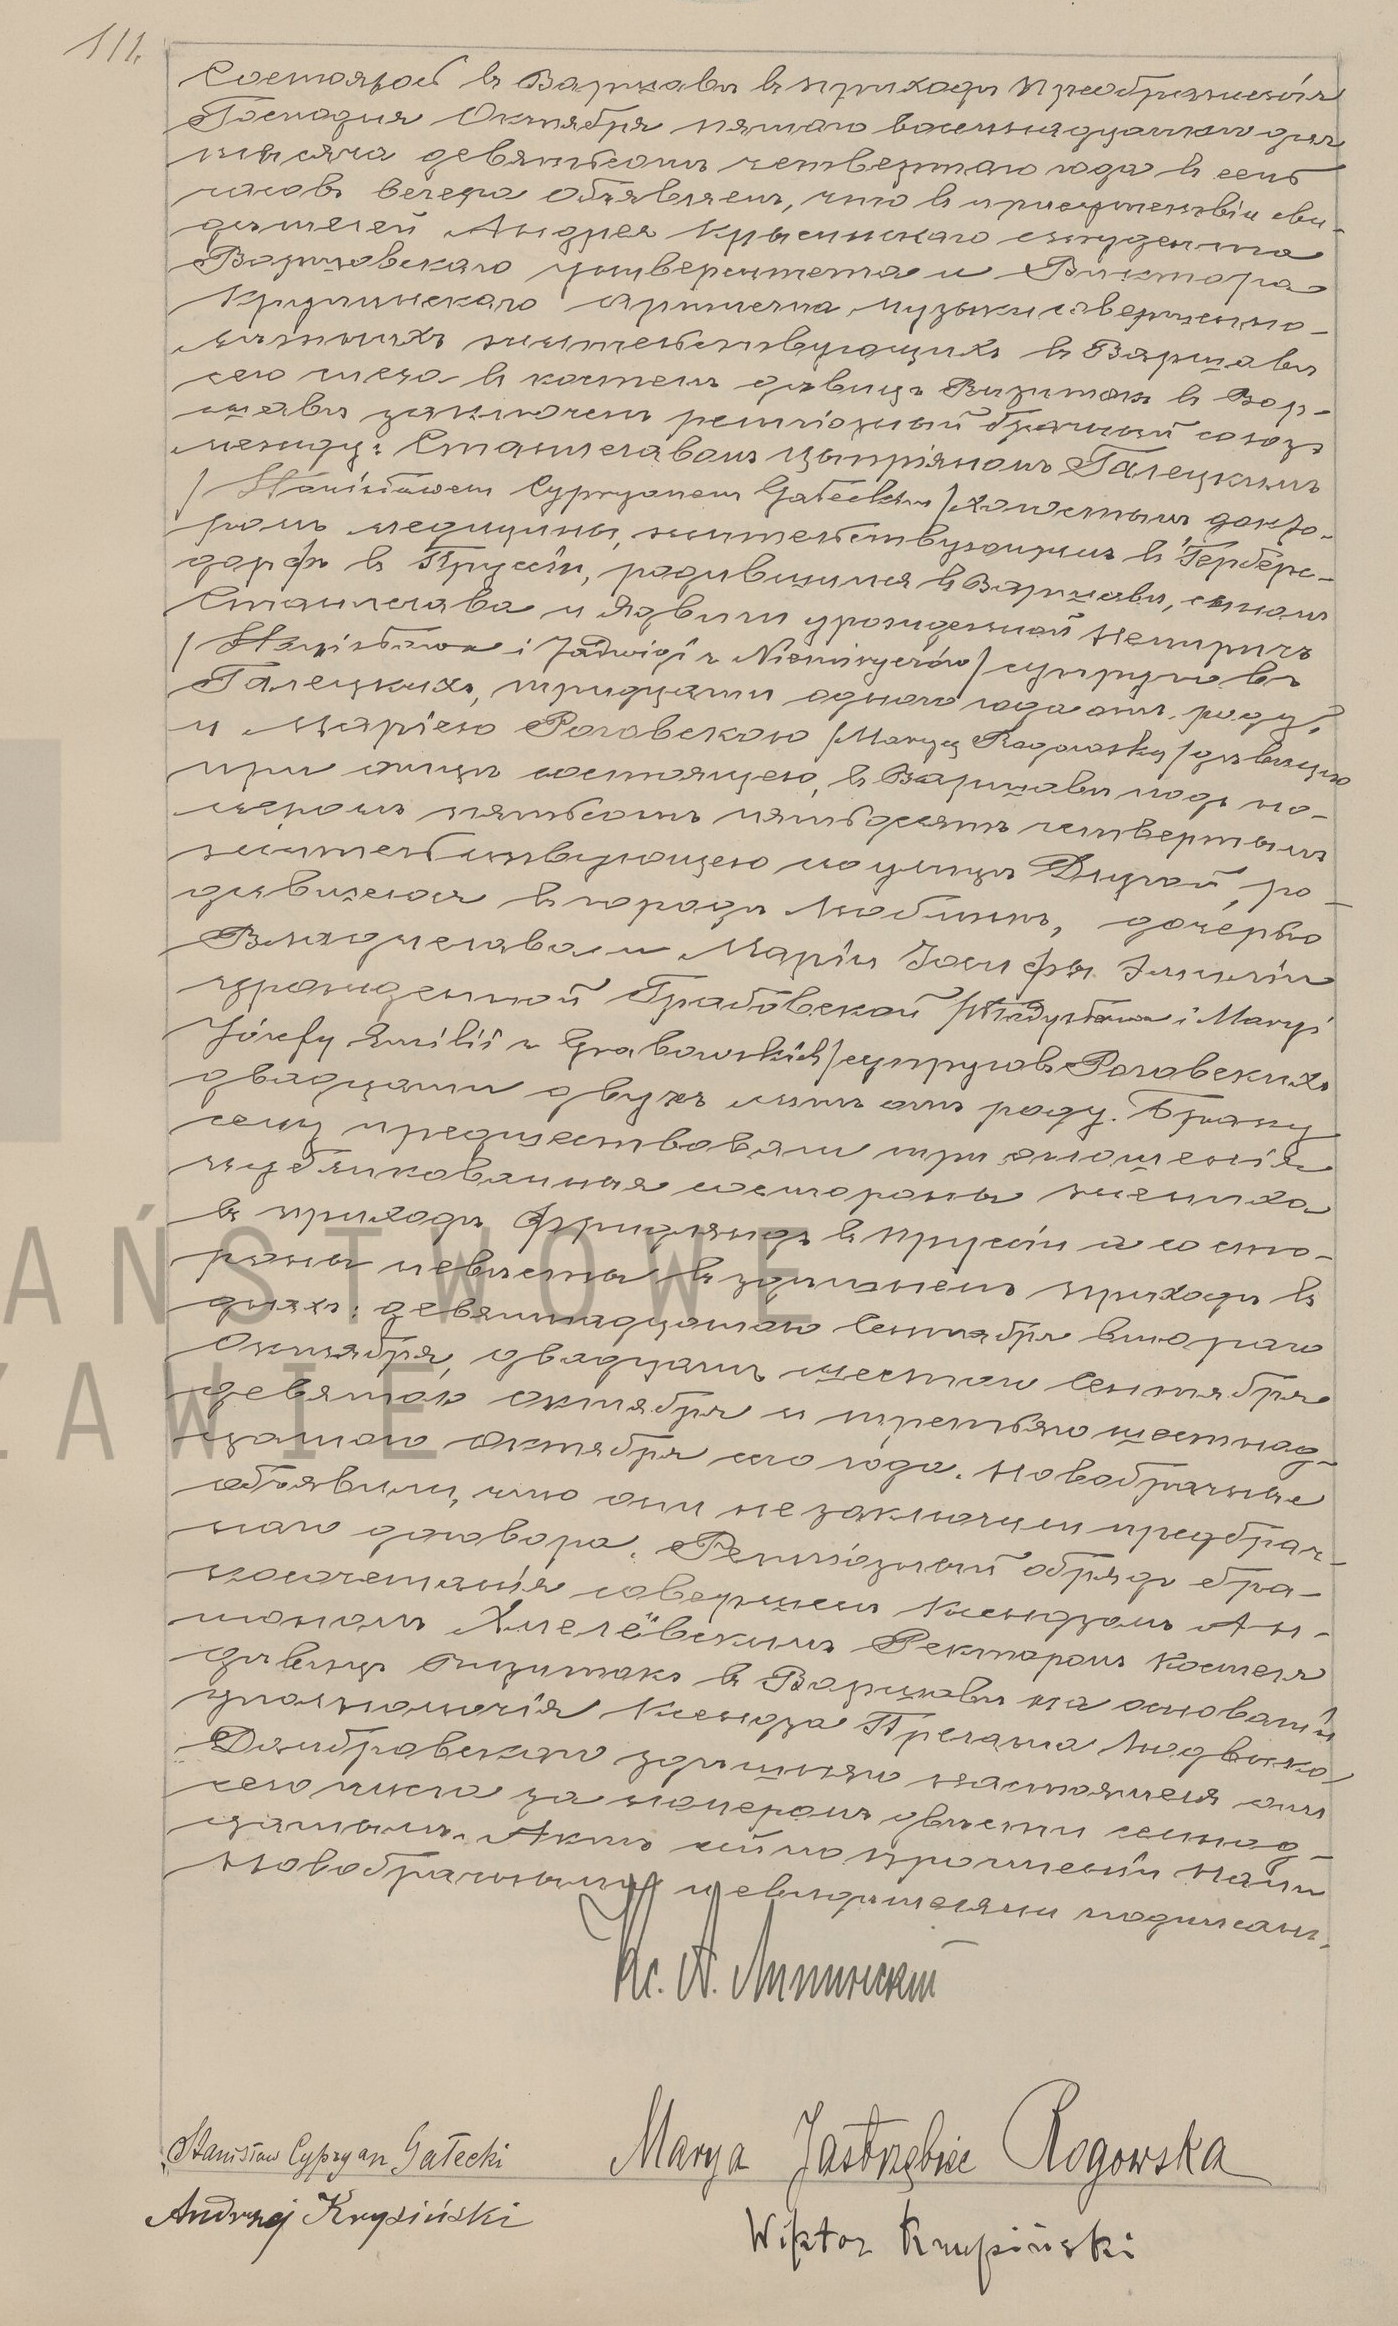 111.
Состоялось въ Варшавѣ въ приходѣ Преображенія
Господня Октября пятаго восемнадцатаго дня
тысяча девятьсотъ четвертаго года въ семь
часовъ вечера Объявляемъ, что въ присутствіи сви-
дѣтелей Андрея Крысинскаго студента
Варшавскаго университета и Виктора
Крупинскаго артиста музыки совершенно-
лѣтнихъ жительствующихъ въ Варшавѣ
сего числа въ костелѣ дѣвицъ Визитокъ въ Вар-
шавѣ заключенъ религіозный брачный союзъ
между: Станиславомъ Цыпріяномъ Галецкимъ
/Stanisławem Cypryanem Gałeckim/ холостымъ докто-
ромъ медицины, жительствующимъ въ Гербере-
дорфѣ въ Пруссіи, родившимся въ Варшавѣ, сыномъ
Станислава и Ядвиги урожденной Немиричъ
/Stanisława i Jadwigi z Niemiryczów/ супруговъ
Галецкихъ, тридцати одного года отъ роду,
и Маріею Роговскою /Maryą Rogowską/ дѣвицею
при отцѣ состоящею, въ Варшавѣ подъ но-
меромъ пятьсотъ пятьдесятъ четвертымъ
жительствующею по улицѣ Длугой, ро-
дившеюся въ городѣ Люблинѣ, дочерью
Владислава и Маріи Іосифы Эмиліи
урожденной Грабовской /Władysława i Maryi
Józefy Emilii z Grabowskich/ супруговъ Роговскихъ
двадцати двухъ лѣтъ отъ роду. Браку
сему предшествовали три оглашенія
публикованныя со стороны жениха
въ приходѣ Фридляндъ въ Пруссіи а со сто-
роны невѣсты въ здѣшнемъ приходѣ въ
дняхъ: девятнадцатаго Сентября втораго
Октября, двадцать шестаго Сентября
девятаго Октября и третьяго шестнад-
цатаго Октября сего года. Новобрачные
объявили, что они не заключили предбрач-
наго договора. Религіозный обрядъ бра-
косочетанія совершенъ Ксендзомъ Ан-
тономъ Хмелёвскимъ Ректоромъ Костела
дѣвицъ Визитокъ въ Варшавѣ на основаніи
уполномочія Ксендза Прелата Людвика
Дамбровскаго здѣшняго настоятеля отъ
сего числа за номеромъ двѣсти семнад-
цатымъ. Актъ сей по прочтеніи Нами
Новобрачными и свидѣтелями подписанъ.
Кс. А. Липинскій
Stanisław Cypryan Gałecki
Marya Jastrzębiec Rogowska
Andrzej Krysiński
Wiktor Krupiński
AŃSTWOWE
ZAWIE